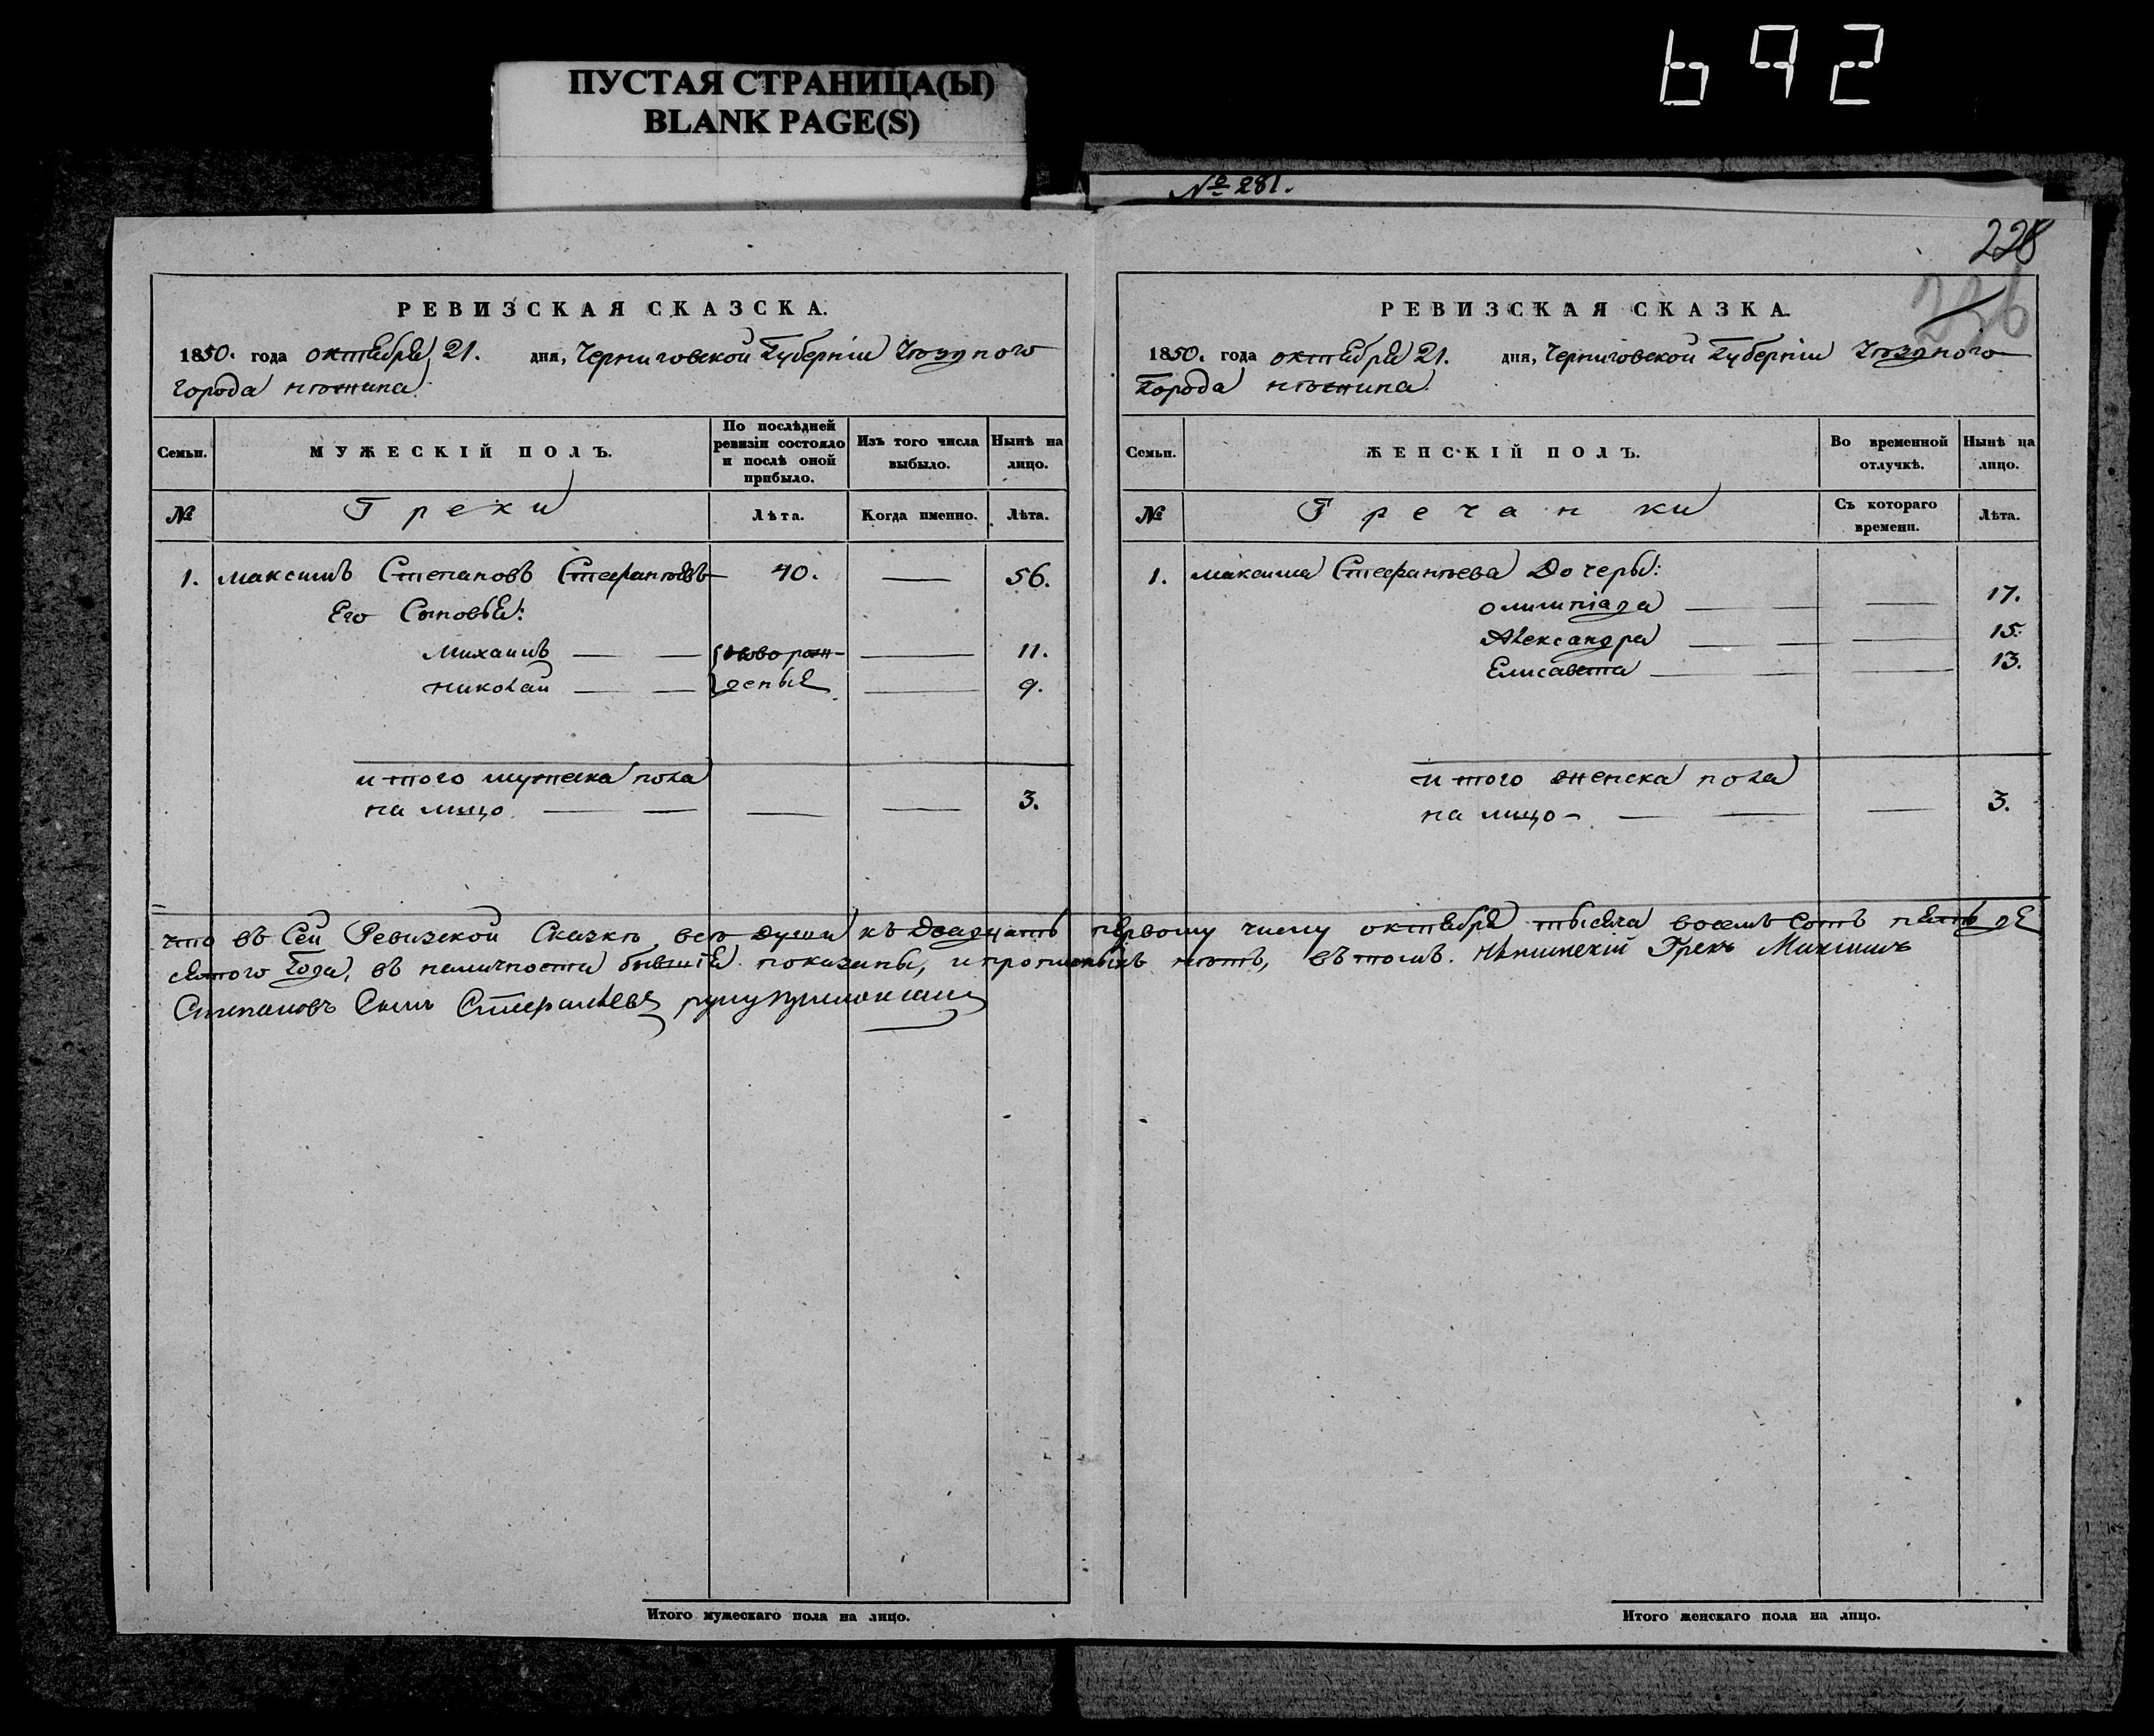 692
ПУСТАЯ СТРАНИЦА(Ы)
BLANK PAGE(S)
№ 281.
228
РЕВИЗСКАЯ СКАЗСКА.
1850. года октября 21. дня, Черниговской Губерніи Уѣзднаго
города нѣжина
Семьи.
МУЖЕСКІЙ ПОЛЪ.
По послѣдней ревизіи состояло и послѣ оной прибыло.
Изъ того числа выбыло.
Нынѣ на лицо.
№
Греки
Лѣта.
Когда именно.
Лѣта.
1. Максимъ Степановъ Стефанѣевъ 40. — 56.
Его Сыновья:
Михаилъ — — новорож- — 11.
Николай — — деные — 9.
итого мужеска пола
на лицо — — — — 3.
РЕВИЗСКАЯ СКАЗКА.
1850. года октября 21. дня, Черниговской Губерніи Уѣзднаго
Города нѣжина
Семьи.
ЖЕНСКІЙ ПОЛЪ.
Во временной отлучкѣ.
Нынѣ на лицо.
№
Гречанки
Съ котораго времени.
Лѣта.
1. Максима Стефанѣева Дочеры:
олимпіада — — — 17.
Александра — — — 15.
Елисавета — — — 13.
итого женска пола
на лицо — — — — 3.
что въ Сей Ревизской Сказкѣ всѣ души къ Двадцать первому числу октября тысяча восемъ Сотъ пять де
сятого Года, въ наличности бывшія показаны, и прописныхъ нѣтъ, въ томъ. Нѣжинскій Грекъ Максимъ
Степановъ Сынъ Стефанѣевъ руку приложилъ
Итого мужескаго пола на лицо.
Итого женскаго пола на лицо.